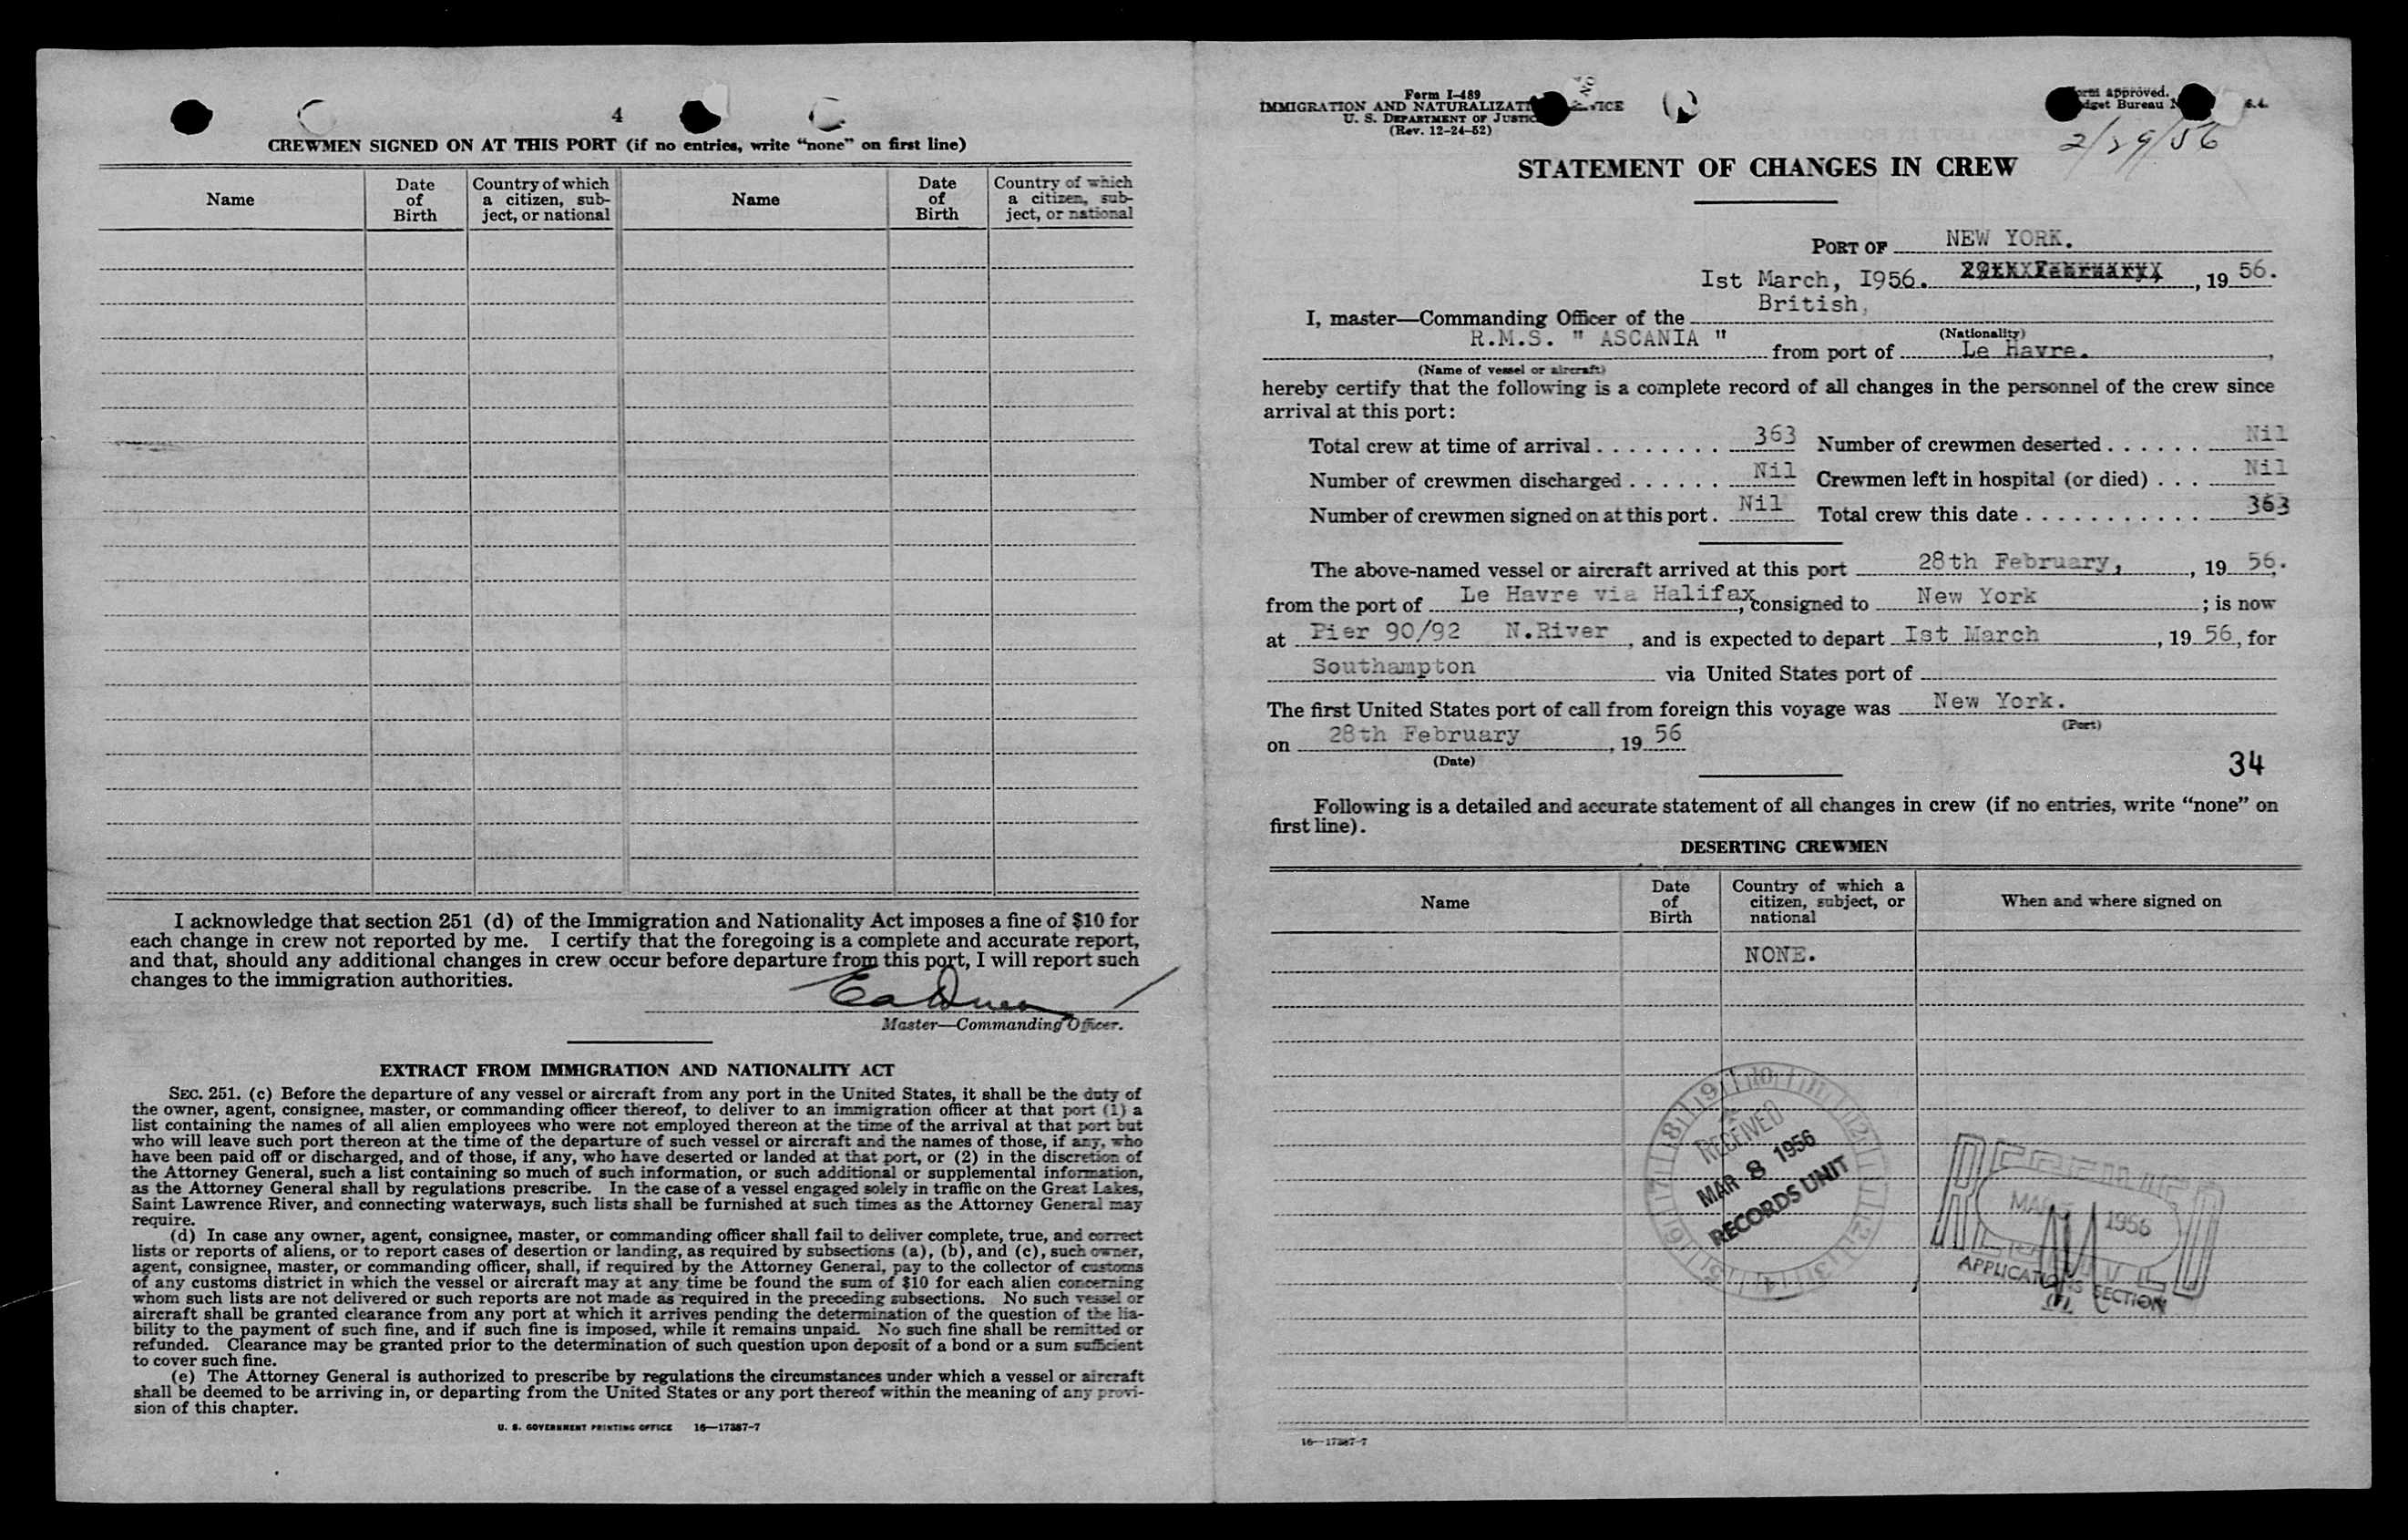 4
CREWMEN SIGNED ON AT THIS PORT (if no entries, write “none” on first line)
Name
Date of Birth
Country of which a citizen, sub-ject, or national
Name
Date of Birth
Country of which a citizen, sub-ject, or national
I acknowledge that section 251 (d) of the Immigration and Nationality Act imposes a fine of $10 for
each change in crew not reported by me. I certify that the foregoing is a complete and accurate report,
and that, should any additional changes in crew occur before departure from this port, I will report such
changes to the immigration authorities.
Master—Commanding Officer.
EXTRACT FROM IMMIGRATION AND NATIONALITY ACT
SEC. 251. (c) Before the departure of any vessel or aircraft from any port in the United States, it shall be the duty of
the owner, agent, consignee, master, or commanding officer thereof, to deliver to an immigration officer at that port (1) a
list containing the names of all alien employees who were not employed thereon at the time of the arrival at that port but
who will leave such port thereon at the time of the departure of such vessel or aircraft and the names of those, if any, who
have been paid off or discharged, and of those, if any, who have deserted or landed at that port, or (2) in the discretion of
the Attorney General, such a list containing so much of such information, or such additional or supplemental information,
as the Attorney General shall by regulations prescribe. In the case of a vessel engaged solely in traffic on the Great Lakes,
Saint Lawrence River, and connecting waterways, such lists shall be furnished at such times as the Attorney General may
require.
(d) In case any owner, agent, consignee, master, or commanding officer shall fail to deliver complete, true, and correct
lists or reports of aliens, or to report cases of desertion or landing, as required by subsections (a), (b), and (c), such owner,
agent, consignee, master, or commanding officer, shall, if required by the Attorney General, pay to the collector of customs
of any customs district in which the vessel or aircraft may at any time be found the sum of $10 for each alien concerning
whom such lists are not delivered or such reports are not made as required in the preceding subsections. No such vessel or
aircraft shall be granted clearance from any port at which it arrives pending the determination of the question of the lia-
bility to the payment of such fine, and if such fine is imposed, while it remains unpaid. No such fine shall be remitted or
refunded. Clearance may be granted prior to the determination of such question upon deposit of a bond or a sum sufficient
to cover such fine.
(e) The Attorney General is authorized to prescribe by regulations the circumstances under which a vessel or aircraft
shall be deemed to be arriving in, or departing from the United States or any port thereof within the meaning of any provi-
sion of this chapter.
U. S. GOVERNMENT PRINTING OFFICE 16—17387-7
Form I-489
IMMIGRATION AND NATURALIZAT VICE
U. S. DEPARTMENT OF JUSTIC
(Rev. 12-24-52)
orm approved.
dget Bureau N
2/29/56
STATEMENT OF CHANGES IN CREW
PORT OF NEW YORK.
Ist March, I956. 29th February, , 19 56.
I, master—Commanding Officer of the British,
(Nationality)
R.M.S. " ASCANIA " from port of Le Havre. ,
(Name of vessel or aircraft)
hereby certify that the following is a complete record of all changes in the personnel of the crew since
arrival at this port:
Total crew at time of arrival 363 Number of crewmen deserted Nil
Number of crewmen discharged Nil Crewmen left in hospital (or died) Nil
Number of crewmen signed on at this port. Nil Total crew this date 363
The above-named vessel or aircraft arrived at this port 28th February, , 19 56.
from the port of Le Havre via Halifax, consigned to New York ; is now
at Pier 90/92 N.River , and is expected to depart Ist March , 19 56, for
Southampton via United States port of
The first United States port of call from foreign this voyage was New York.
(Port)
on 28th February , 19 56
(Date)
34
Following is a detailed and accurate statement of all changes in crew (if no entries, write “none” on
first line).
DESERTING CREWMEN
Name
Date of Birth
Country of which a citizen, subject, or national
When and where signed on
NONE.
RECEIVED
MAR 8 1956
RECORDS UNIT
RECEIVED
MAR 1956
APPLICATIONS SECTION
16—17387-7